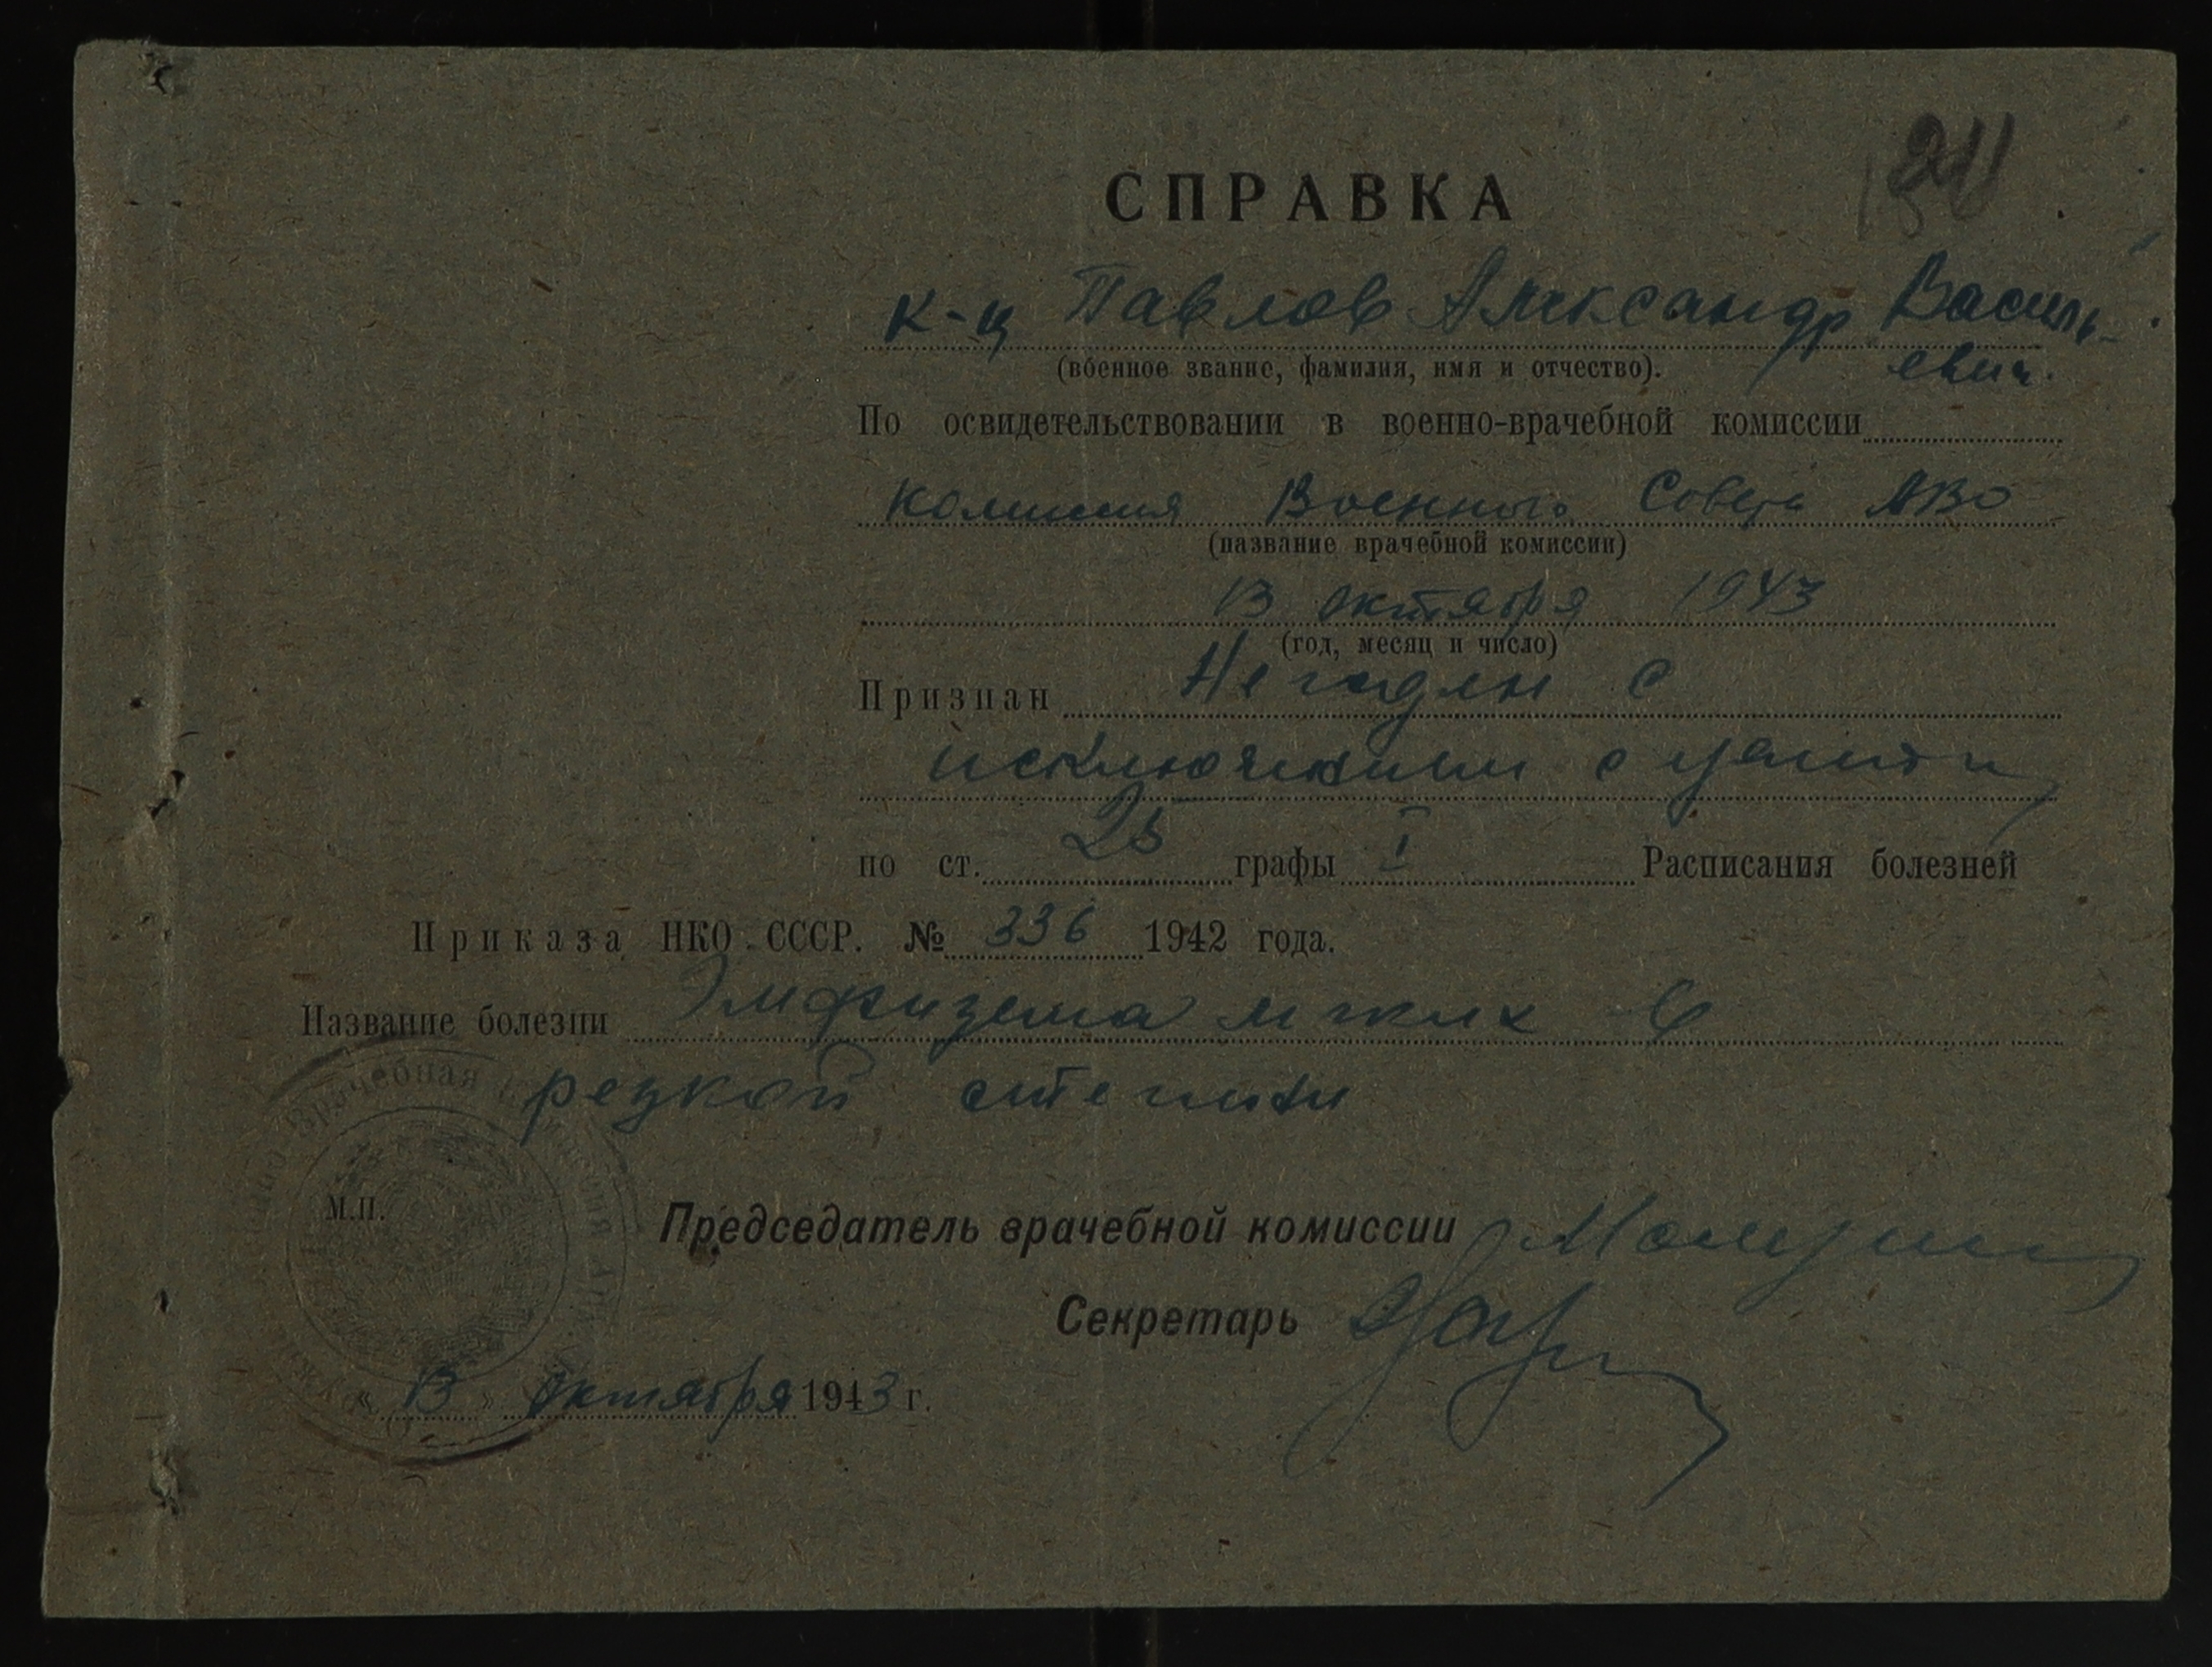 СПРАВКА
к-ц Павлов Александр Василь-
евич.
(военное звание, фамилия, имя и отчество).
По освидетельствовании в военно-врачебной комиссии
комиссия Военного Совета АВО
(название врачебной комиссии)
13 октября 1943
(год, месяц и число)
Признан Негоден с
исключением с учета
по ст. 25 графы I Расписания болезней
Приказа НКО СССР. № 336 1942 года.
Название болезни Эмфизема легких в
резкой степени
Врачебная
М.П.
Председатель врачебной комиссии
Секретарь
« 13 » октября 1943 г.